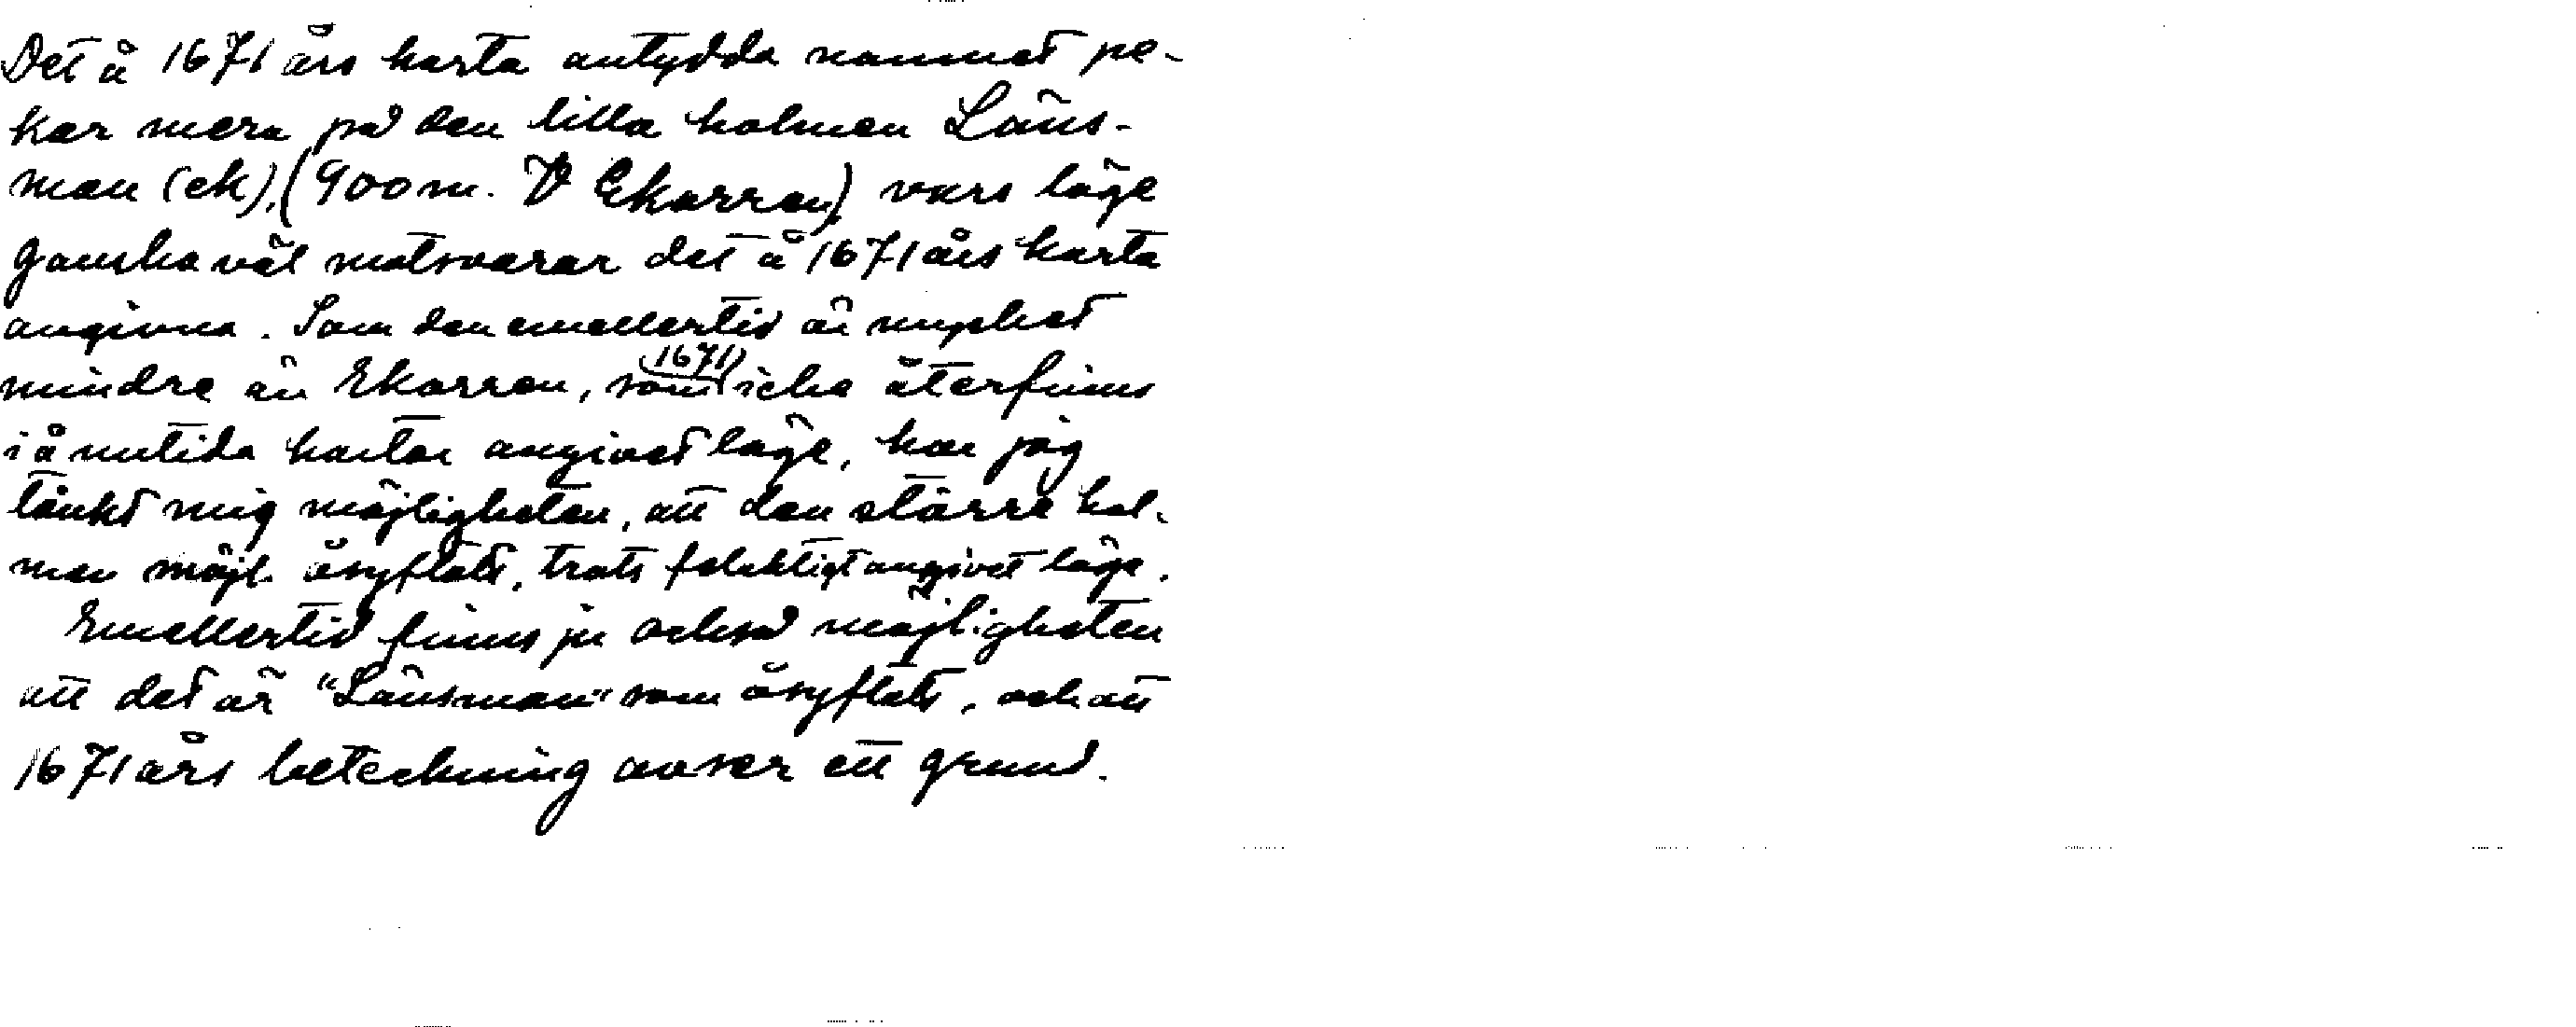 Det å 1671 års karta antydda namnet pe-
kar mera på den lilla holmen Läns-
man (ek), (900 m. V Ekorren) vars läge
ganska väl motsvarar det å 1671 års karta
angivna. Som den emellertid är mycket
mindre än Ekorren, som (1671) icke återfinns
i å nutida kartor angivet läge, har jag
tänkt mig möjligheten, att den större hol-
men möjl. åsyftats, trots felaktigt angivet läge.
Emellertid finns ju också möjligheten
att det är "Länsman" som åsyftats, och att
1671 års beteckning avser ett grund.